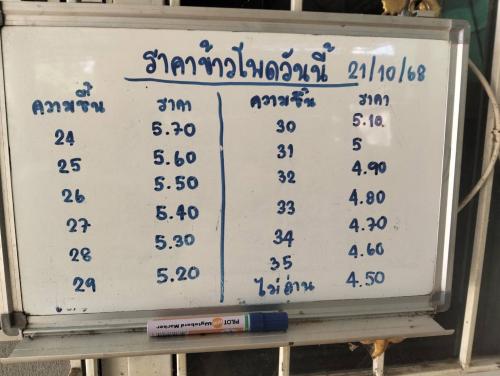 ราคาข้าวโพดวันนี้ 21/10/68
ความชื้น ราคา ความชื้น ราคา
24 5.70 30 5.10
25 5.60 31 5
26 5.50 32 4.90
27 5.40 33 4.80
28 5.30 34 4.70
29 5.20 35 4.60
ไม่ผ่าน 4.50
PILOT Wyteboard Marker